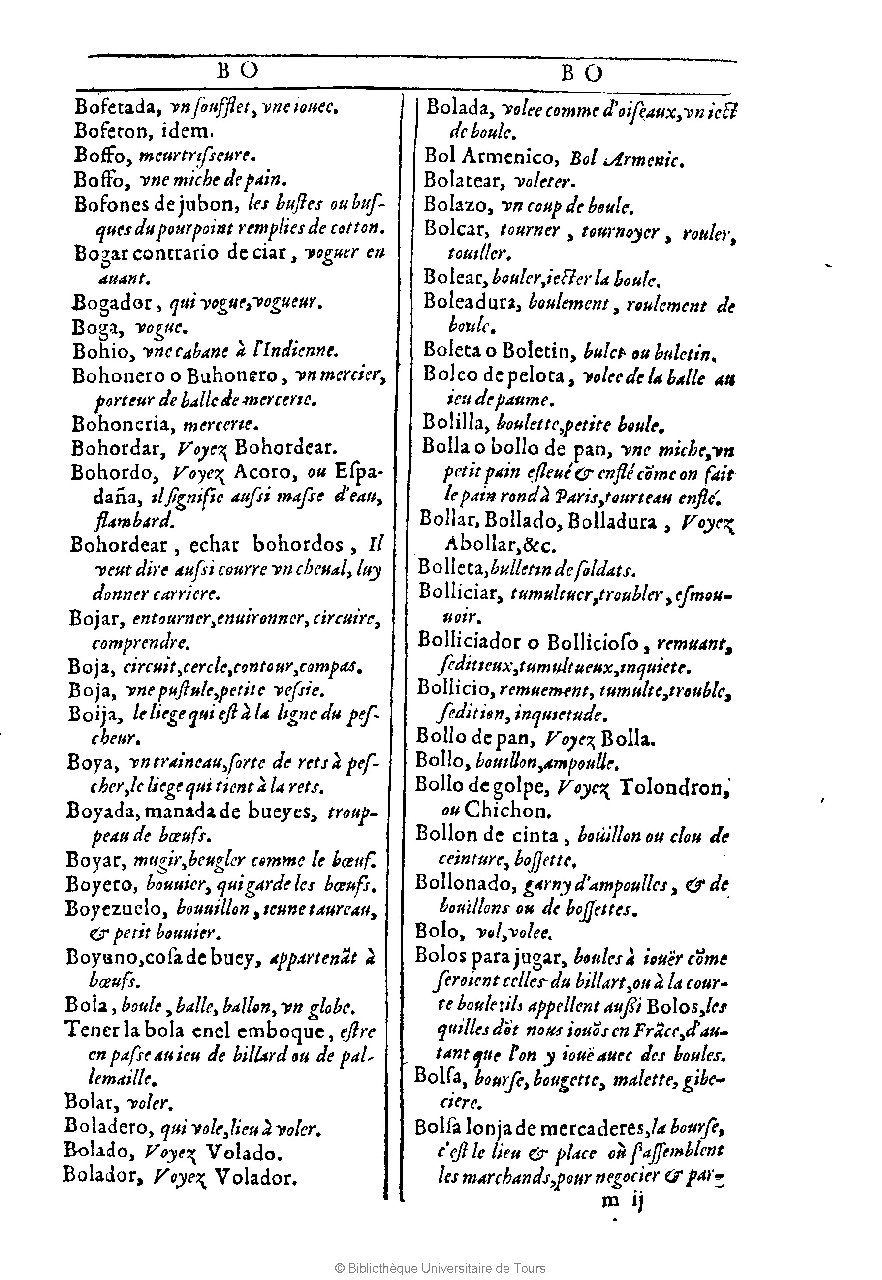 B O
Bofetada, vn soufflet, vne iouee.
Bofeton, idem.
Boffo, meurtrisseure.
Boffo, vne miche de pain.
Bofones de jubon, les bustes ou bus-
ques du pourpoint remplies de cotton.
Bogar contrario de ciar, voguer en
auant.
Bogador, qui vogue, vogueur.
Boga, vogue.
Bohio, vne cabane à l'Indienne.
Bohonero o Buhonero, vn mercier,
porteur de balle de mercerie.
Bohoneria, mercerie.
Bohordar, Voyez Bohordear.
Bohordo, Voyez Acoro, ou Espa-
daña, il signifie aussi masse d'eau,
flambard.
Bohordear, echar bohordos, Il
veut dire aussi courre vn cheual, luy
donner carriere.
Bojar, entourner, enuironner, circuire,
comprendre.
Boja, circuit, cercle, contour, compas.
Boja, vne pustule, petite vessie.
Boija, le liege qui est à la ligne du pes-
cheur.
Boya, vn traineau, sorte de rets à pes-
cher, le liege qui tient à la rets.
Boyada, manada de bueyes, troup-
peau de bœufs.
Boyar, mugir, beugler comme le bœuf.
Boyero, bouuier, qui garde les bœufs.
Boyezuelo, bouuillon, ieune taureau,
& petit bouuier.
Boyuno, cosa de buey, appartenãt à
bœufs.
Bola, boule, balle, ballon, vn globe.
Tener la bola enel emboque, estre
en passe au ieu de billard ou de pal-
lemaille.
Bolar, voler.
Boladero, qui vole, lieu à voler.
Bolado, Voyez Volado.
Bolador, Voyez Volador.
B O
Bolada, volee comme d'oiseaux, vn iect
de boule.
Bol Armenico, Bol Armenic.
Bolatear, voleter.
Bolazo, vn coup de boule.
Bolcar, tourner, tournoyer, rouler,
touiller.
Bolear, bouler, iecter la boule.
Boleadura, boulement, roulement de
boule.
Boleta o Boletin, bulet ou buletin.
Boleo de pelota, volee de la balle au
ieu de paume.
Bolilla, boulette, petite boule.
Bolla o bollo de pan, vne miche, vn
petit pain esleué & enflé cõme on fait
le pain rond à Paris, tourteau enflé.
Bollar, Bollado, Bolladura, Voyez
Abollar, &c.
Bolleta, bulletin de soldats.
Bolliciar, tumultuer, troubler, esmou-
uoir.
Bolliciador o Bollicioso, remuant,
seditieux, tumultueux, inquiete.
Bollicio, remuement, tumulte, trouble,
sedition, inquietude.
Bollo de pan, Voyez Bolla.
Bollo, bouillon, ampoulle.
Bollo de golpe, Voyez Tolondron,
ou Chichon.
Bollon de cinta, boüillon ou clou de
ceinture, bossette.
Bollonado, garny d'ampoulles, & de
boüillons ou de bossettes.
Bolo, vol, volee.
Bolos para jugar, boules à iouër cõme
seroient celles du billart, ou à la cour-
te boule: ils appellent aussi Bolos, les
quilles dõt nous iouõs en Frãce, d'au-
tant que l'on y iouë auec des boules.
Bolsa, bourse, bougette, malette, gibe-
ciere.
Bolsa lonja de mercaderes, la bourse,
c'est le lieu & place où s'assemblent
les marchands, pour negocier & par-
m ij
© Bibliothèque Universitaire de Tours